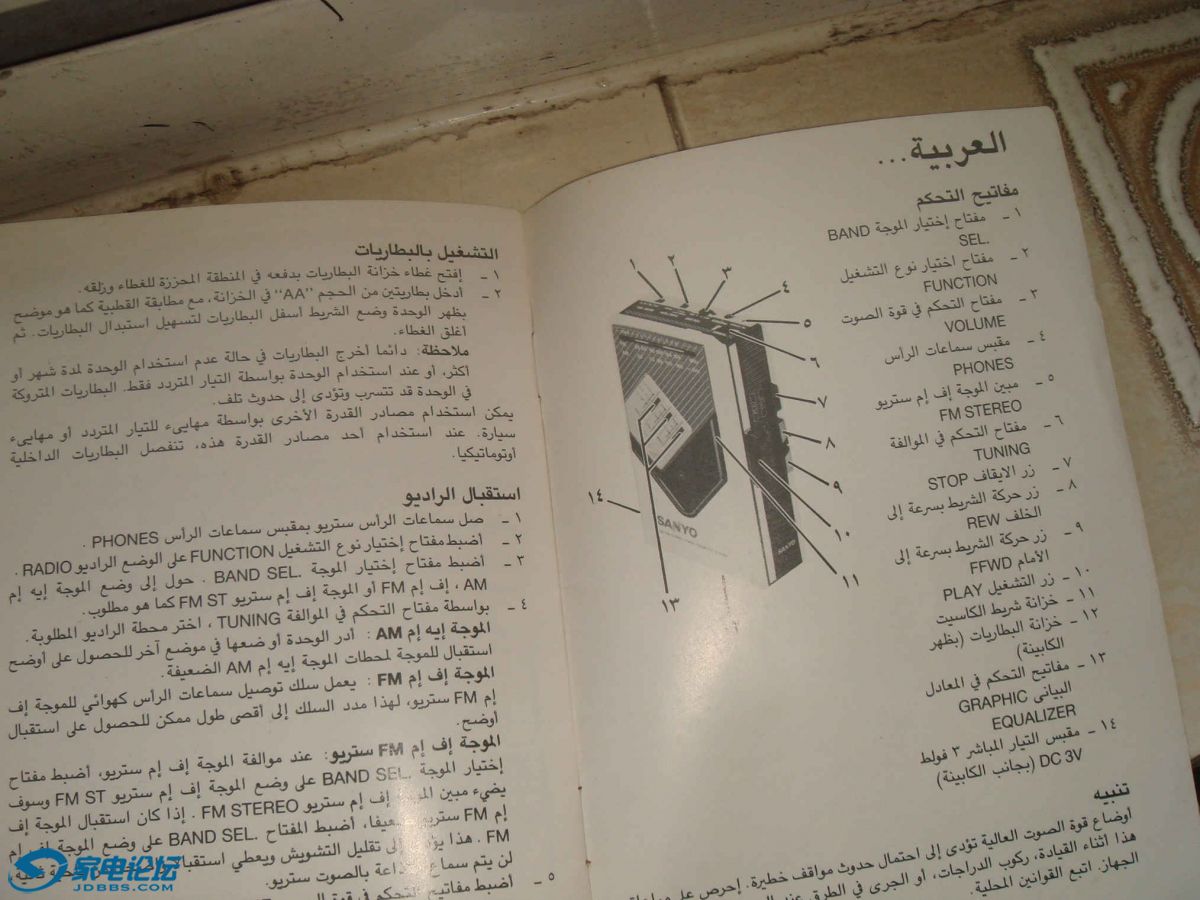 العربية...
مفاتيح التحكم
١ ـ مفتاح إختيار الموجة BAND
SEL.
٢ ـ مفتاح اختيار نوع التشغيل
FUNCTION
٣ ـ مفتاح التحكم في قوة الصوت
VOLUME
٤ ـ مقبس سماعات الرأس
PHONES
٥ ـ مبين الموجة إف إم ستريو
FM STEREO
٦ ـ مفتاح التحكم في الموالفة
TUNING
٧ ـ زر الايقاف STOP
٨ ـ زر حركة الشريط بسرعة إلى
الخلف REW
٩ ـ زر حركة الشريط بسرعة إلى
الأمام FFWD
١٠ ـ زر التشغيل PLAY
١١ ـ خزانة شريط الكاسيت
١٢ ـ خزانة البطاريات (بظهر
الكابينة)
١٣ ـ مفاتيح التحكم في المعادل
البيانى GRAPHIC
EQUALIZER
١٤ ـ مقبس التيار المباشر ٣ فولط
DC 3V (بجانب الكابينة)
١
٢
٣
٤
٥
٦
٧
٨
٩
١٠
١١
١٣
١٤
SANYO
SANYO
تنبيه
أوضاع قوة الصوت العالية تؤدى إلى احتمال حدوث مواقف خطيرة. إحرص على
هذا اثناء القيادة، ركوب الدراجات، أو الجرى في الطرق
الجهاز. اتبع القوانين المحلية.
التشغيل بالبطاريات
١ ـ إفتح غطاء خزانة البطاريات بدفعه في المنطقة المحززة للغطاء وزلقه.
٢ ـ أدخل بطاريتين من الحجم "AA" في الخزانة، مع مطابقة القطبية كما هو موضح
بظهر الوحدة وضع الشريط اسفل البطاريات لتسهيل استبدال البطاريات. ثم
اغلق الغطاء.
ملاحظة: دائما أخرج البطاريات في حالة عدم استخدام الوحدة لمدة شهر او
اكثر، أو عند استخدام الوحدة بواسطة التيار المتردد فقط. البطاريات المتروكة
في الوحدة قد تتسرب وتؤدى إلى حدوث تلف.
يمكن استخدام مصادر القدرة الأخرى بواسطة مهايىء للتيار المتردد أو مهايىء
سيارة. عند استخدام أحد مصادر القدرة هذه، تنفصل البطاريات الداخلية
أوتوماتيكيا.
استقبال الراديو
١ ـ صل سماعات الرأس ستريو بمقبس سماعات الرأس PHONES .
٢ ـ أضبط مفتاح إختيار نوع التشغيل FUNCTION على الوضع الراديو RADIO .
٣ ـ أضبط مفتاح إختيار الموجة BAND SEL. . حول إلى وضع الموجة إيه إم
AM ، إف إم FM أو الموجة إف إم ستريو FM ST كما هو مطلوب.
٤ ـ بواسطة مفتاح التحكم في الموالفة TUNING ، اختر محطة الراديو المطلوبة.
الموجة إيه إم AM : أدر الوحدة أو ضعها في موضع آخر للحصول على أوضح
استقبال للموجة لمحطات الموجة إيه إم AM الضعيفة.
الموجة إف إم FM : يعمل سلك توصيل سماعات الرأس كهوائي للموجة إف
إم FM ستريو، لهذا مدد السلك إلى أقصى طول ممكن للحصول على استقبال
أوضح.
الموجة إف إم FM ستريو: عند موالفة الموجة إف إم ستريو، أضبط مفتاح
إختيار الموجة BAND SEL. على وضع الموجة إف إم ستريو FM ST وسوف
يضيء مبين إف إم ستريو FM STEREO . إذا كان استقبال الموجة إف
إم FM ستريو أضبط المفتاح BAND SEL. على وضع الموجة إف إم
FM . هذا إلى تقليل التشويش ويعطي
لن يتم سماع بالصوت ستريو.
٥ ـ أضبط مفاتيح التحكم في قوة
家电论坛
JDBBS.COM